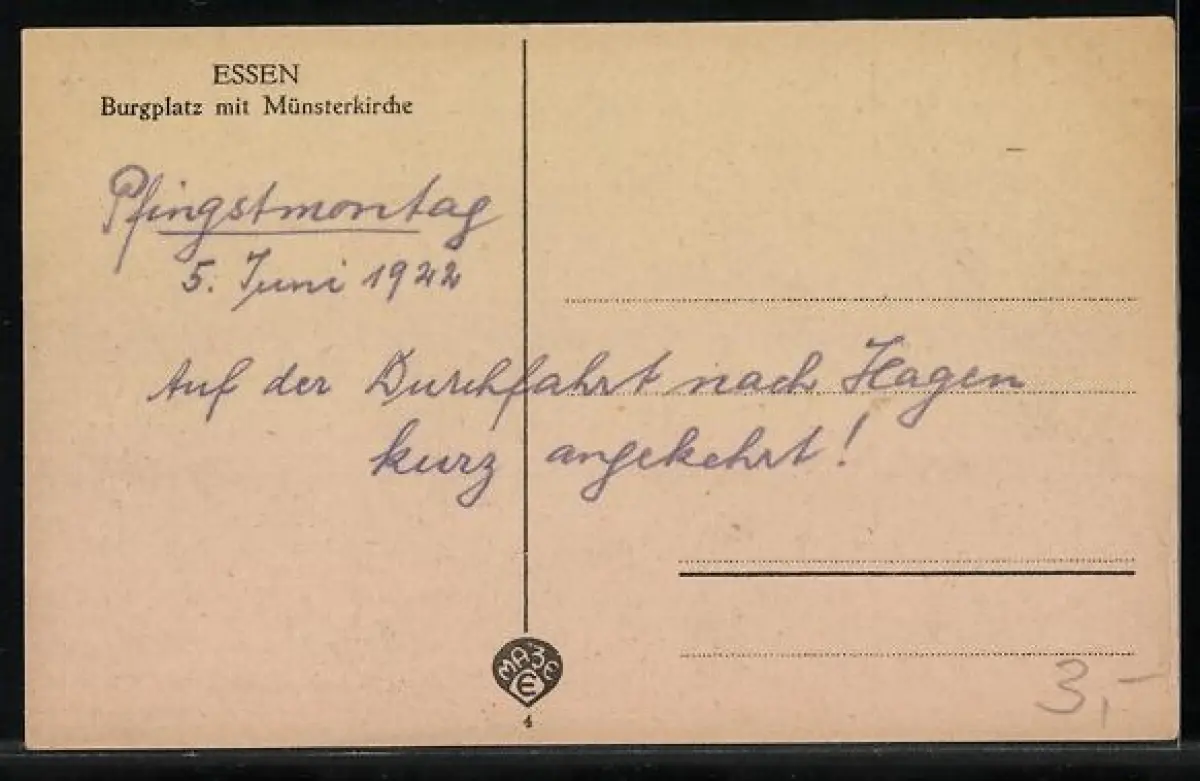 ESSEN
Burgplatz mit Münsterkirche
Pfingstmontag
5. Juni 1922
Auf der Durchfahrt nach Hagen
kurz angekehrt!
MAZE
E
4
3,-